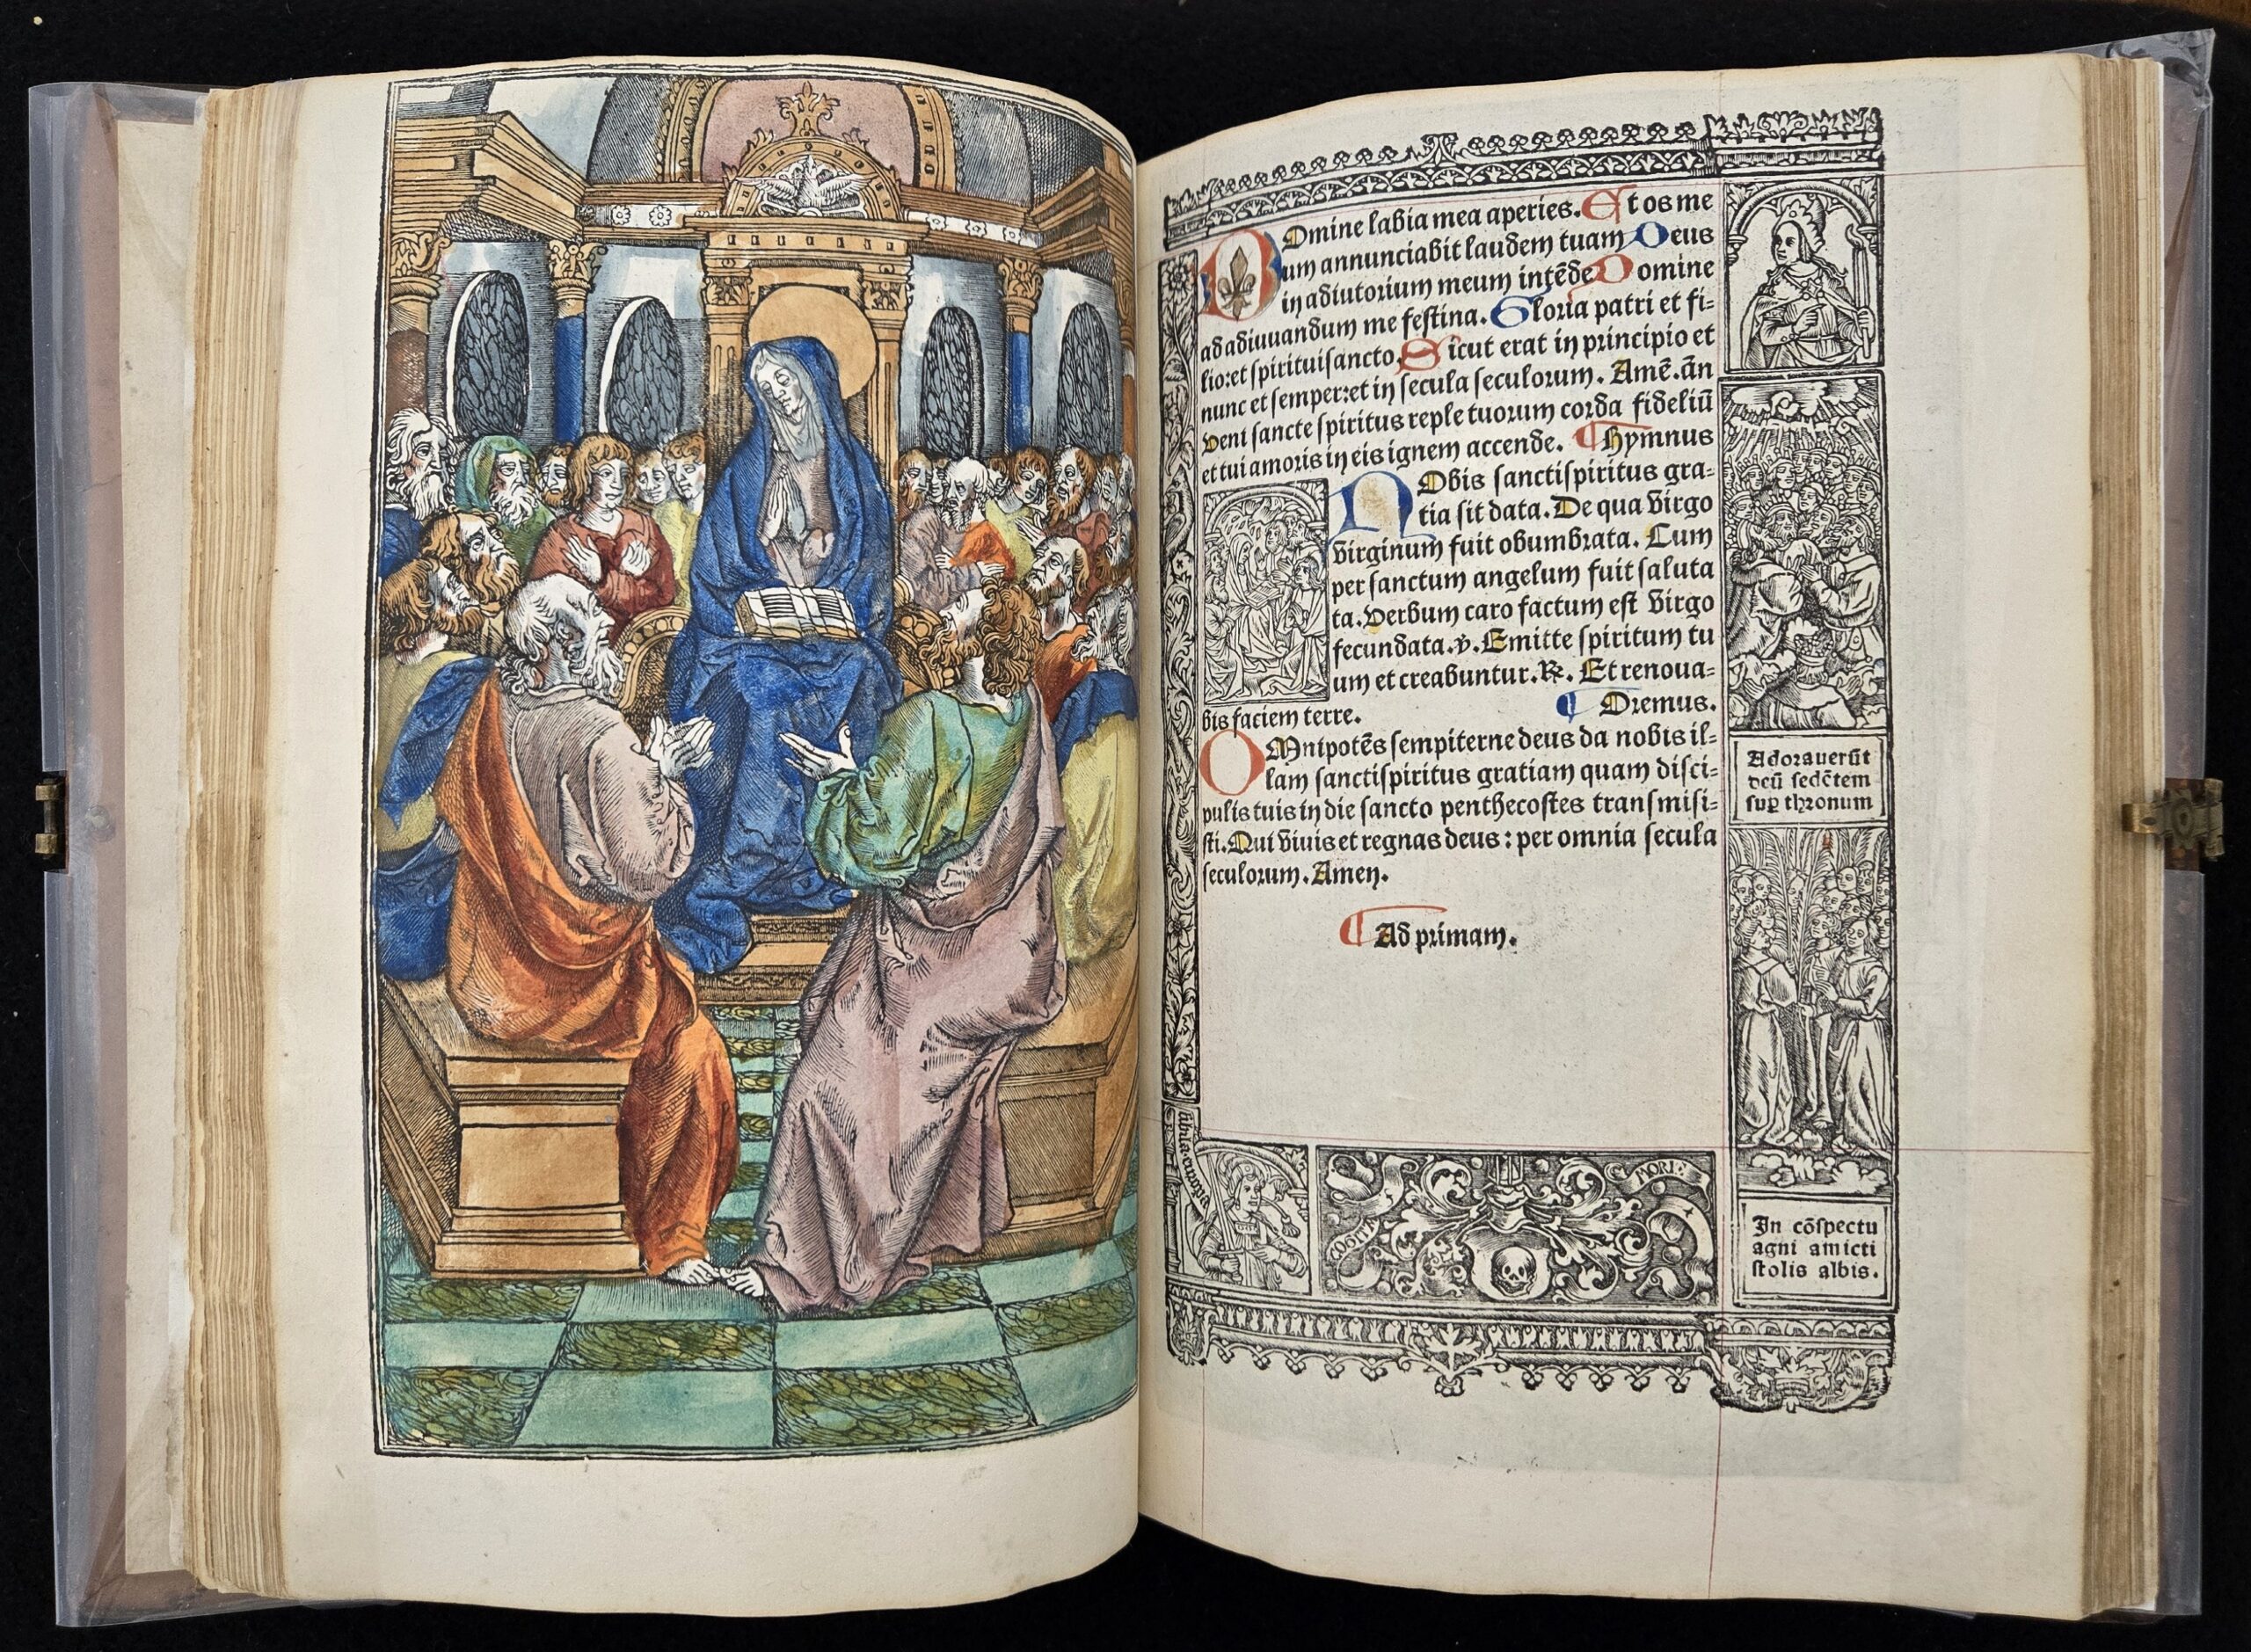 Domine labia mea aperies. Et os me
um annunciabit laudem tuam Deus
in adiutorium meum intēde Domine
ad adiuuandum me festina. Gloria patri et fi-
lio: et spirituisancto. Sicut erat in principio et
nunc et semper: et in secula seculorum. Amē. añ
Veni sancte spiritus reple tuorum corda fideliū
et tui amoris in eis ignem accende. ¶ Hymnus
NObis sanctispiritus gra-
tia sit data. De qua virgo
virginum fuit obumbrata. Cum
per sanctum angelum fuit saluta
ta. Verbum caro factum est virgo
fecundata. ℣. Emitte spiritum tu
um et creabuntur. ℟. Et renoua-
bis faciem terre. ¶ Oremus.
OMnipotēs sempiterne deus da nobis il-
lam sanctispiritus gratiam quam disci-
pulis tuis in die sancto penthecostes transmisi-
sti. Qui viuis et regnas deus: per omnia secula
seculorum. Amen.
¶ Ad primam.
Adorauerūt
deū sedētem
sup thronum
In cōspectu
agni amicti
stolis albis.
COGITA
MORI